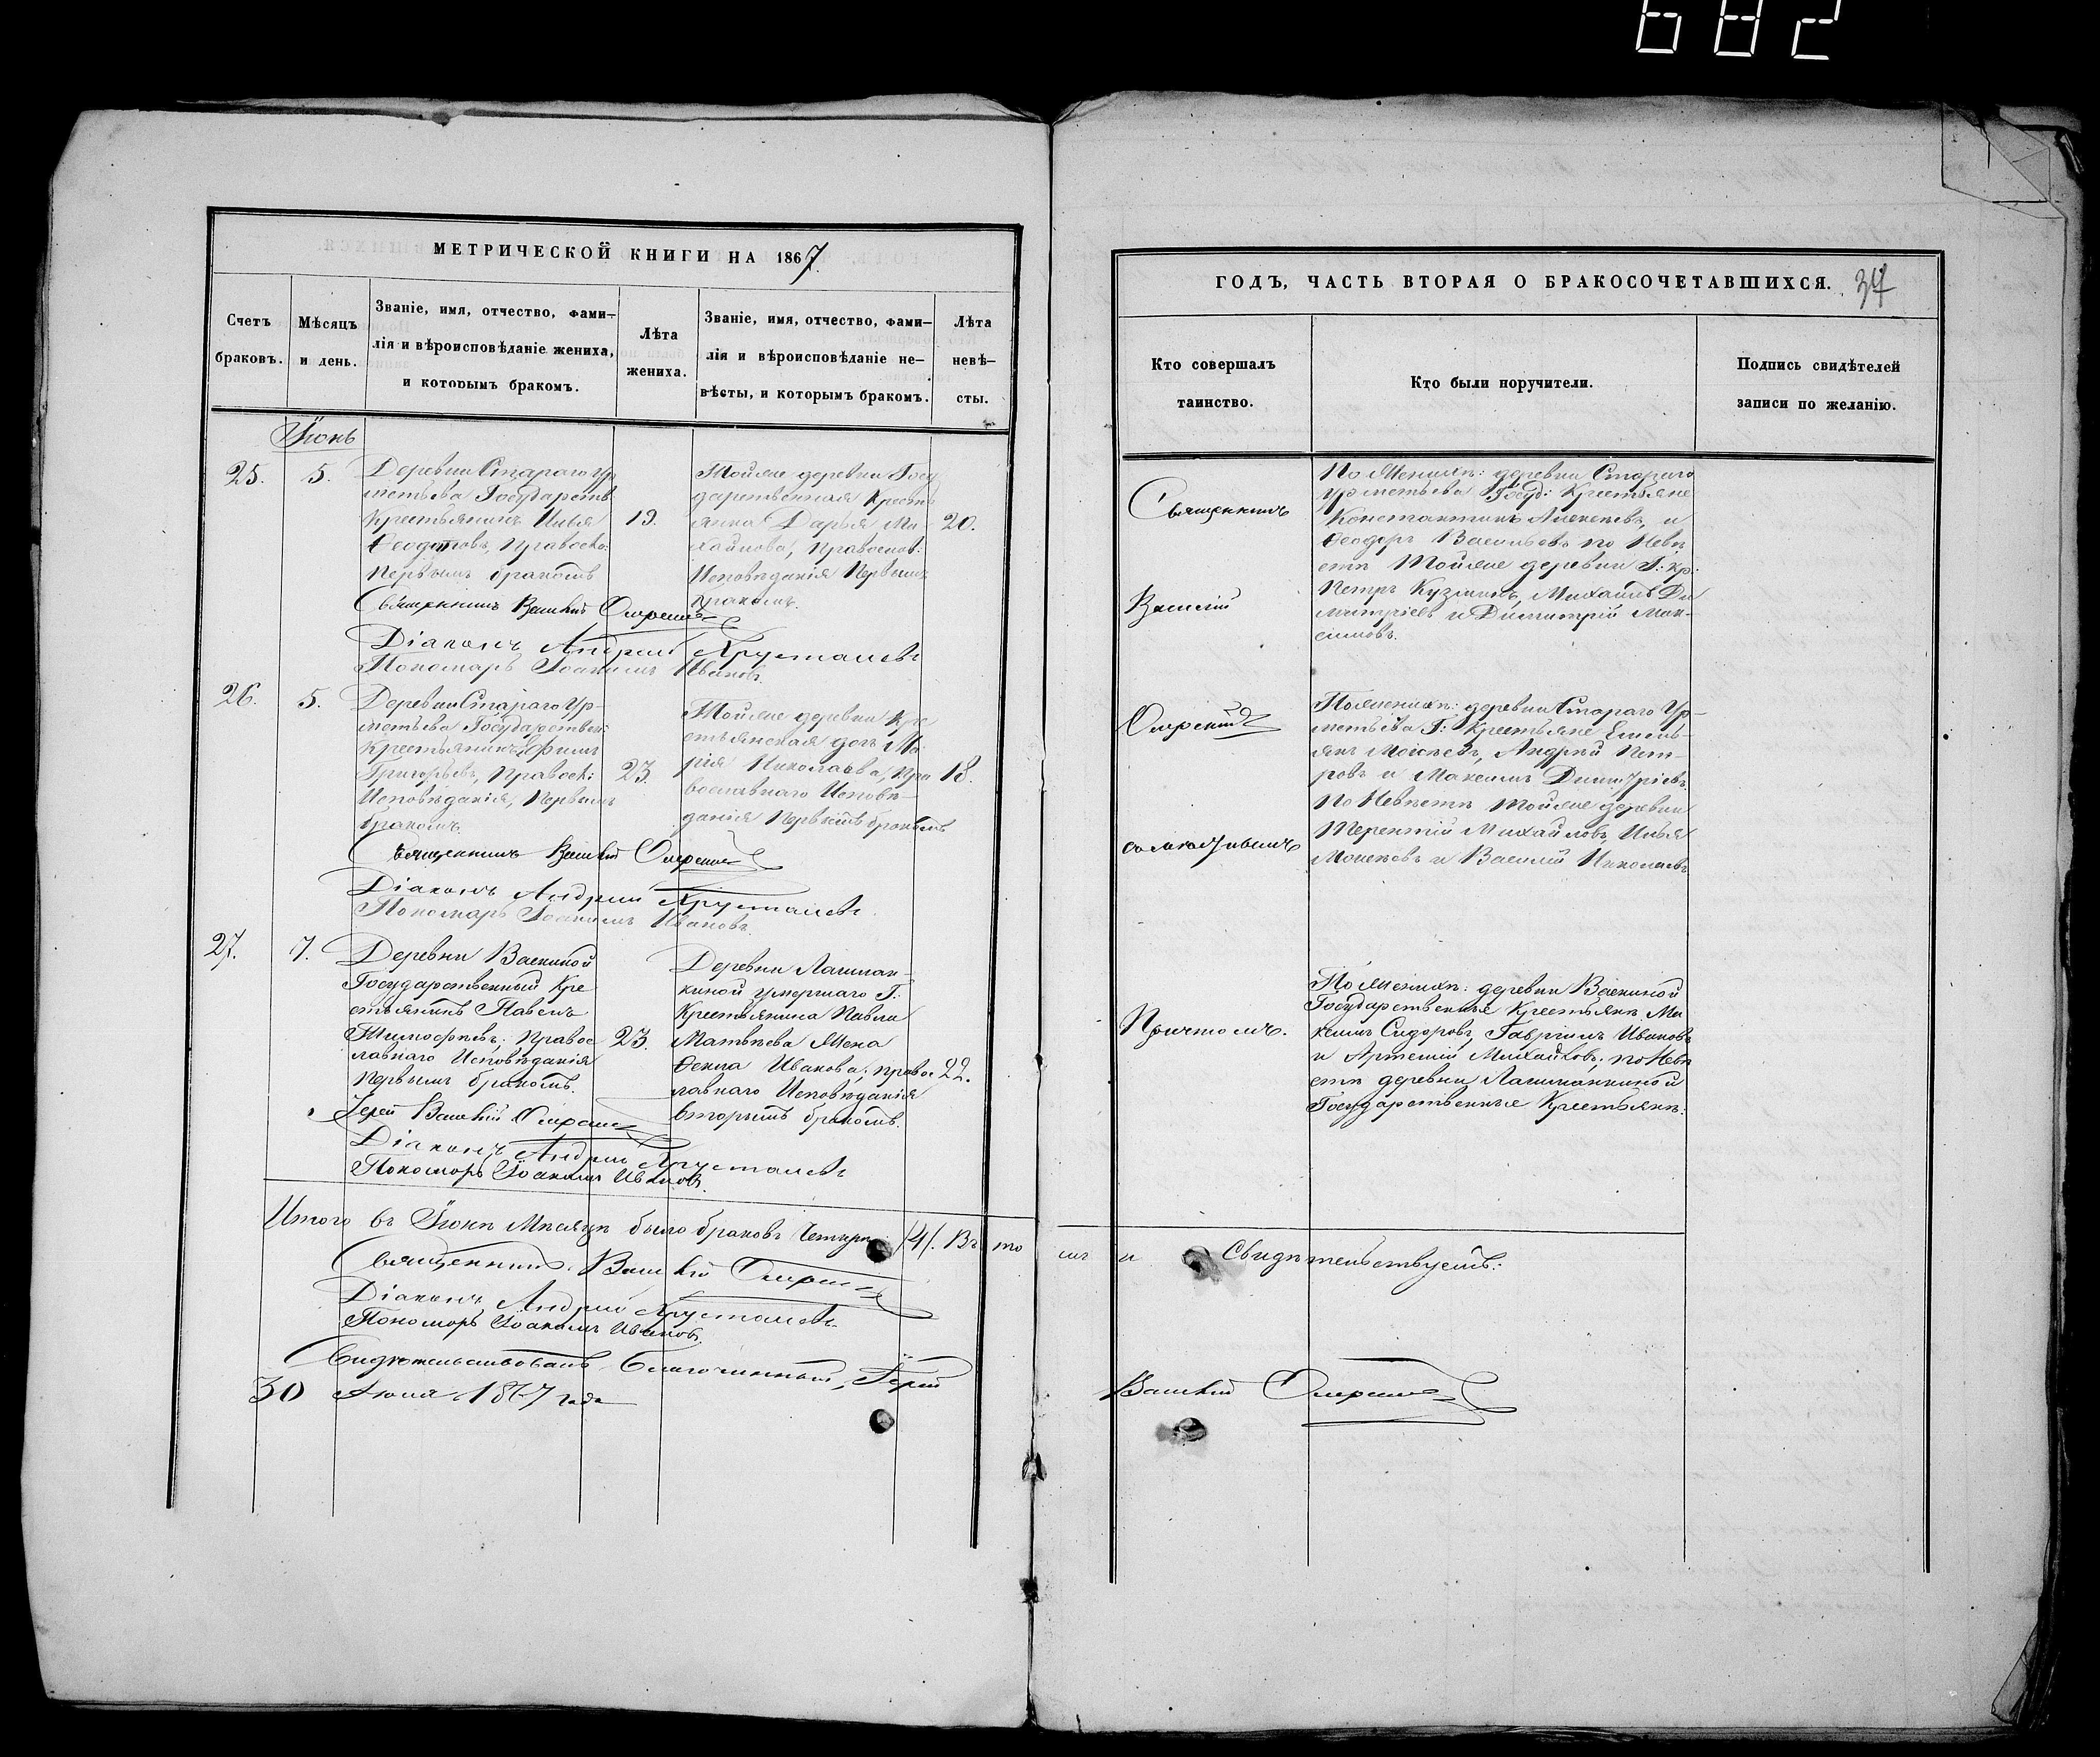 682
МЕТРИЧЕСКОЙ КНИГИ НА 1867.
Счетъ браковъ.
Мѣсяцъ и день.
Званіе, имя, отчество, фами-
лія и вѣроисповѣданіе жениха,
и которымъ бракомъ.
Лѣта жениха.
Званіе, имя, отчество, фами-
лія и вѣроисповѣданіе не-
вѣсты, и которымъ бракомъ.
Лѣта невѣ-
сты.
Іюнь
25.
5.
Деревни Стараго Ур
метьева Государств
Крестьянинъ Илья
Ѳеодотовъ, Правосл:
Первымъ бракомъ
19.
Тойже деревни Госу
дарственная Кресть
янка Дарья Ми
хайлова, Правослов:
Исповѣданія Первымъ
бракомъ.
20.
Священникъ Василій
Діаконъ Андрей Хрусталевъ
Пономарь Іоакимъ Ивановъ
26.
5.
Деревни Стараго Ур-
метьева Государствен:
Крестьянинъ Ефимъ
Григорьевъ, Правосл:
Исповѣданія, Первымъ
бракомъ.
23.
Тойже деревни Кре
стьянская дочь Ма
рія Николаева, Пра
вославнаго Исповѣ-
данія Первымъ бракомъ
18.
Священникъ Василій
Діаконъ Андрей Хрусталевъ
Пономарь Іоакимъ Ивановъ
27.
7.
Деревни Васкиной
Государственный Кре
стьянинъ Павелъ
Тимофѣевъ, Правос
лавнаго Исповѣданія
Первымъ бракомъ.
23.
Деревни Лашман-
киной умершаго Г:
Крестьянина Павла
Матвѣева Жена
Ѳекла Иванова, Правос
лавнаго Исповѣданія
вторымъ бракомъ.
22.
Іерей Василій
Діаконъ Андрей Хрусталевъ
Пономарь Іоакимъ Ивановъ.
Итого въ Іюнѣ Мѣсяцѣ было браковъ Четыре /4/. Въ то
Священникъ Василій
Діаконъ Андрей Хрусталевъ
Пономарь Іоакимъ Ивановъ.
Свидѣтельствовалъ Благочинный, Іерей
30 Іюня 1867 года
ГОДЪ, ЧАСТЬ ВТОРАЯ О БРАКОСОЧЕТАВШИХСЯ.
Кто совершалъ
таинство.
Кто были поручители.
Подпись свидѣтелей
записи по желанію.
Священникъ
Василій
Причтомъ.
По Женихѣ: деревни Стараго
Урметьева Госуд: Крестьяне
Константинъ Алексѣевъ, и
Ѳеодоръ Васильевъ по Невѣ
стѣ Тойже деревни Г: Кр:
Петръ Кузминъ, Михаилъ Ди
митріевъ и Димитрій Мак-
симовъ.
По женихѣ: деревни Стараго Ур-
метьева Г: Крестьяне Емель-
янъ Моисеевъ, Андрей Пет-
ровъ и Максимъ Димитріевъ
По Невѣстѣ Тойже деревни
Терентій Михайловъ, Илья
и Василій Николаевъ
По Женихѣ: деревни Васкиной
Государственные Крестьяне Ма
ксимъ Сидоровъ, Гавріилъ Ивановъ
и Артемій Михайловъ; по Невѣ
стѣ деревни Лашманкиной
Государственные Крестьяне:
мъ и Свидѣтельствуемъ:
Василій